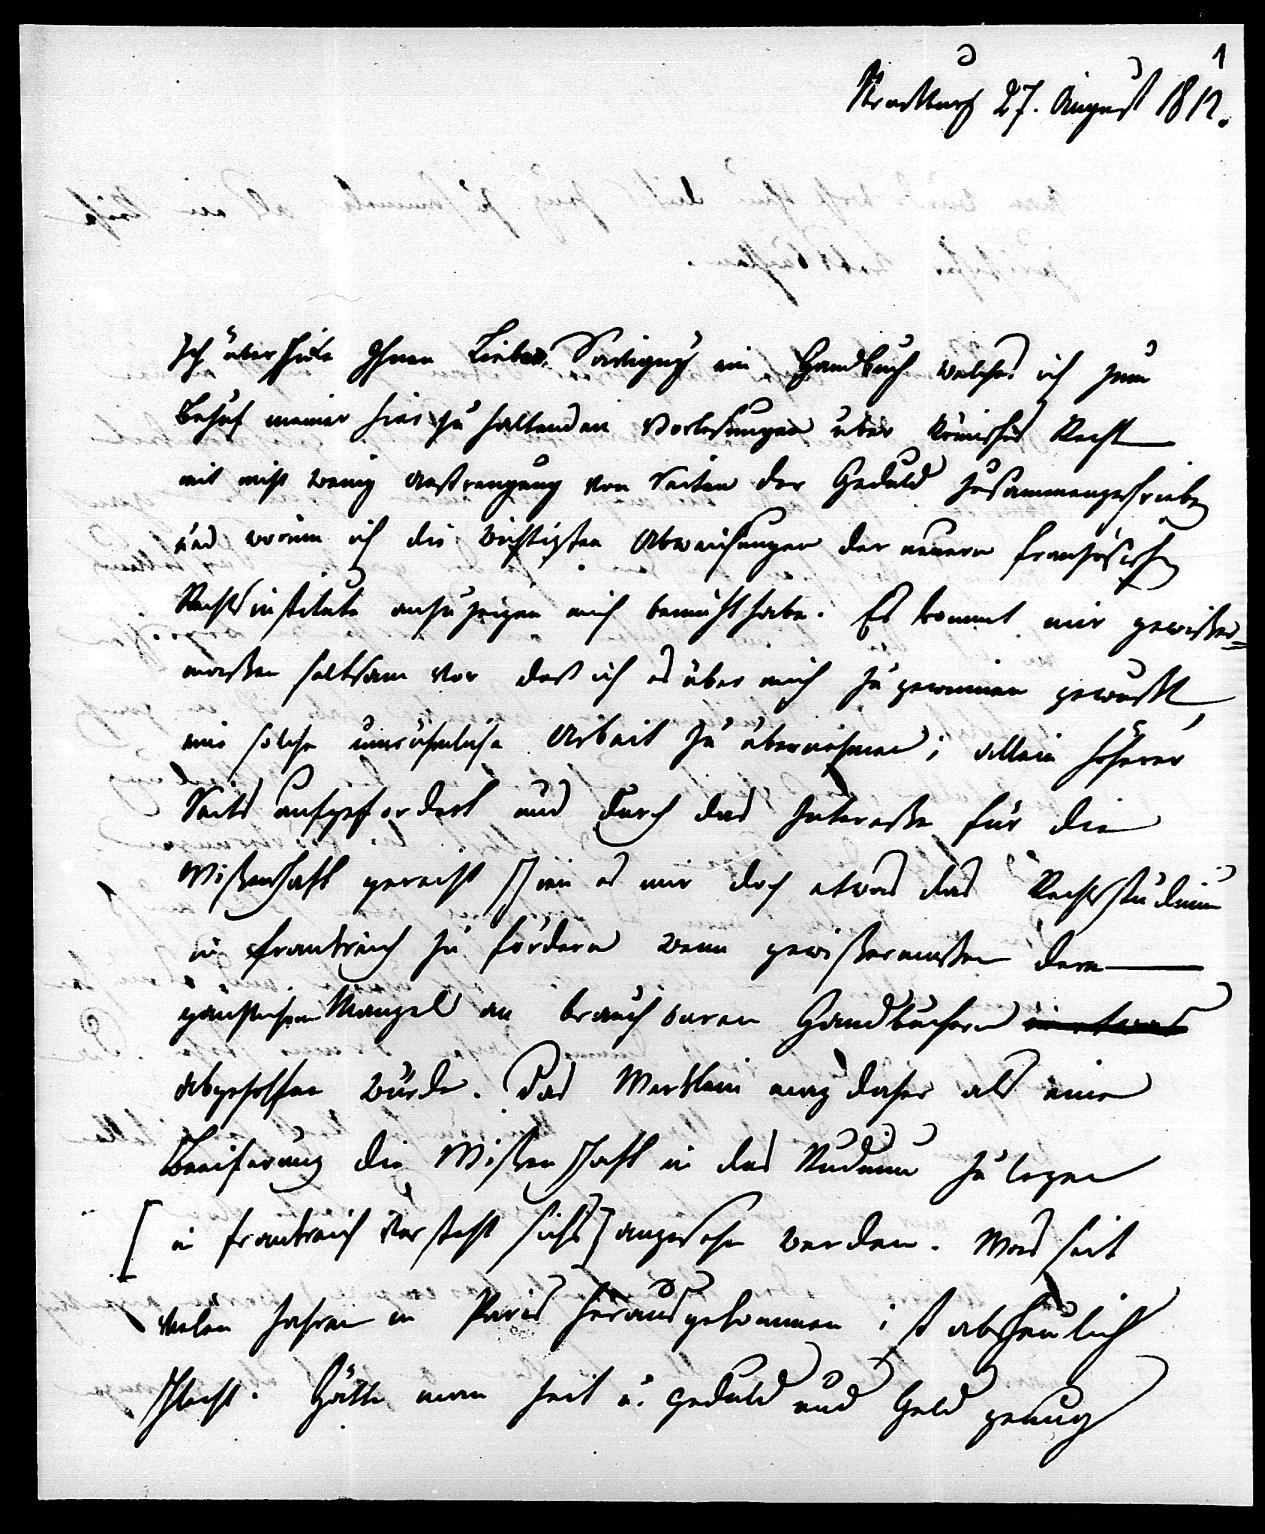 1
Strasburg 27. August 1812.
Ich überschicke Ihnen Lieber Savigny ein Handbuch welches ich zum
Behuf meiner hier zu haltenden Vorlesungen über Römisches Recht
mit nicht wenig Anstrengung von Seiten der Geduld zusammengeschrieben
und worinn ich die wichtigsten Abweichungen der neuern französischen
Rechtsinstitute anzuzeigen mich bemüht habe. Es kommt mir gewisser=
massen seltsam vor dass ich es über mich zu gewinnen gewusst,
eine solche unrühmliche Arbeit zu übernehmen; allein höherer
Seits aufgefordert und durch das Interesse für die
Wissenschaft gereitzt schien es mir doch etwas das Rechtsstudium
in Frankreich zu fördern wenn gewissermassen dem
gänzlichen Mangel an brauchbaren Handbüchern in etwas
abgeholfen würde. Das Werklein mag daher als eine
Beeiferung die Wissenschaft in das Studium zu legen
[in Frankreich versteht sichs] angesehen werden. Was seit
vielen Jahren in Paris herausgekommen ist abscheulich
schlecht. Hätte man Zeit u. Geduld und Geld genug